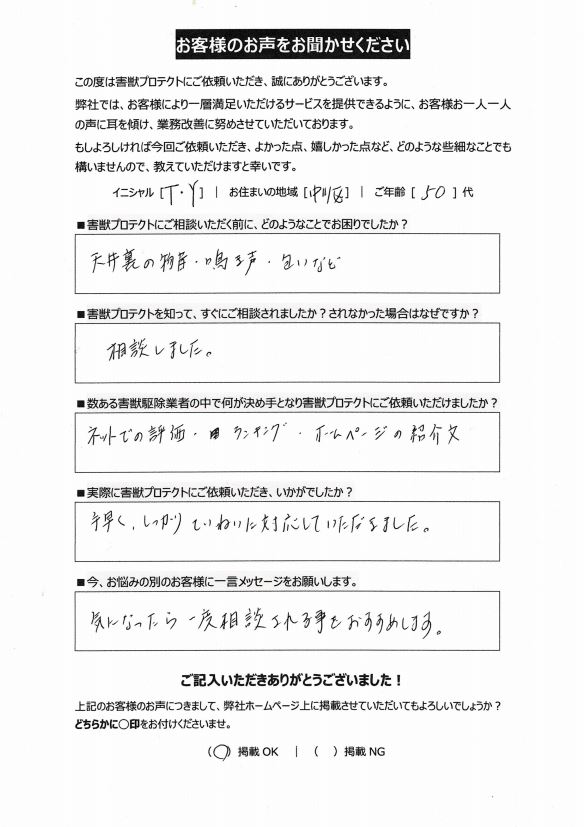 お客様のお声をお聞かせください
この度は害獣プロテクトにご依頼いただき、誠にありがとうございます。
弊社では、お客様により一層満足いただけるサービスを提供できるように、お客様お一人一人
の声に耳を傾け、業務改善に努めさせていただいております。
もしよろしければ今回ご依頼いただき、よかった点、嬉しかった点など、どのような些細なことでも
構いませんので、教えていただけますと幸いです。
イニシャル [T・Y] | お住まいの地域 [中川区] | ご年齢 [50] 代
■害獣プロテクトにご相談いただく前に、どのようなことでお困りでしたか？
天井裏の物音・鳴き声・匂いなど
■害獣プロテクトを知って、すぐにご相談されましたか？されなかった場合はなぜですか？
相談しました。
■数ある害獣駆除業者の中で何が決め手となり害獣プロテクトにご依頼いただけましたか？
ネットでの評価・ランキング・ホームページの紹介文
■実際に害獣プロテクトにご依頼いただき、いかがでしたか？
手早く、しっかりていねいに対応していただきました。
■今、お悩みの別のお客様に一言メッセージをお願いします。
気になったら一度相談される事をおすすめします。
ご記入いただきありがとうございました！
上記のお客様のお声につきまして、弊社ホームページ上に掲載させていただいてもよろしいでしょうか？
どちらかに〇印をお付けくださいませ。
(〇) 掲載 OK | ( ) 掲載 NG